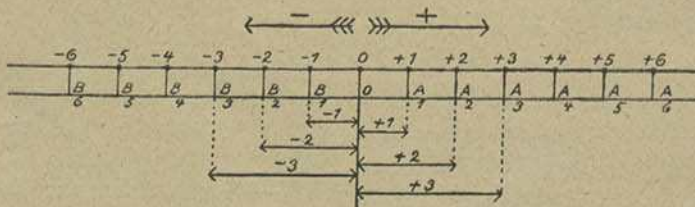 − +
-6 -5 -4 -3 -2 -1 0 +1 +2 +3 +4 +5 +6
B6 B5 B4 B3 B2 B1 0 A1 A2 A3 A4 A5 A6
-1 +1
-2 +2
-3 +3